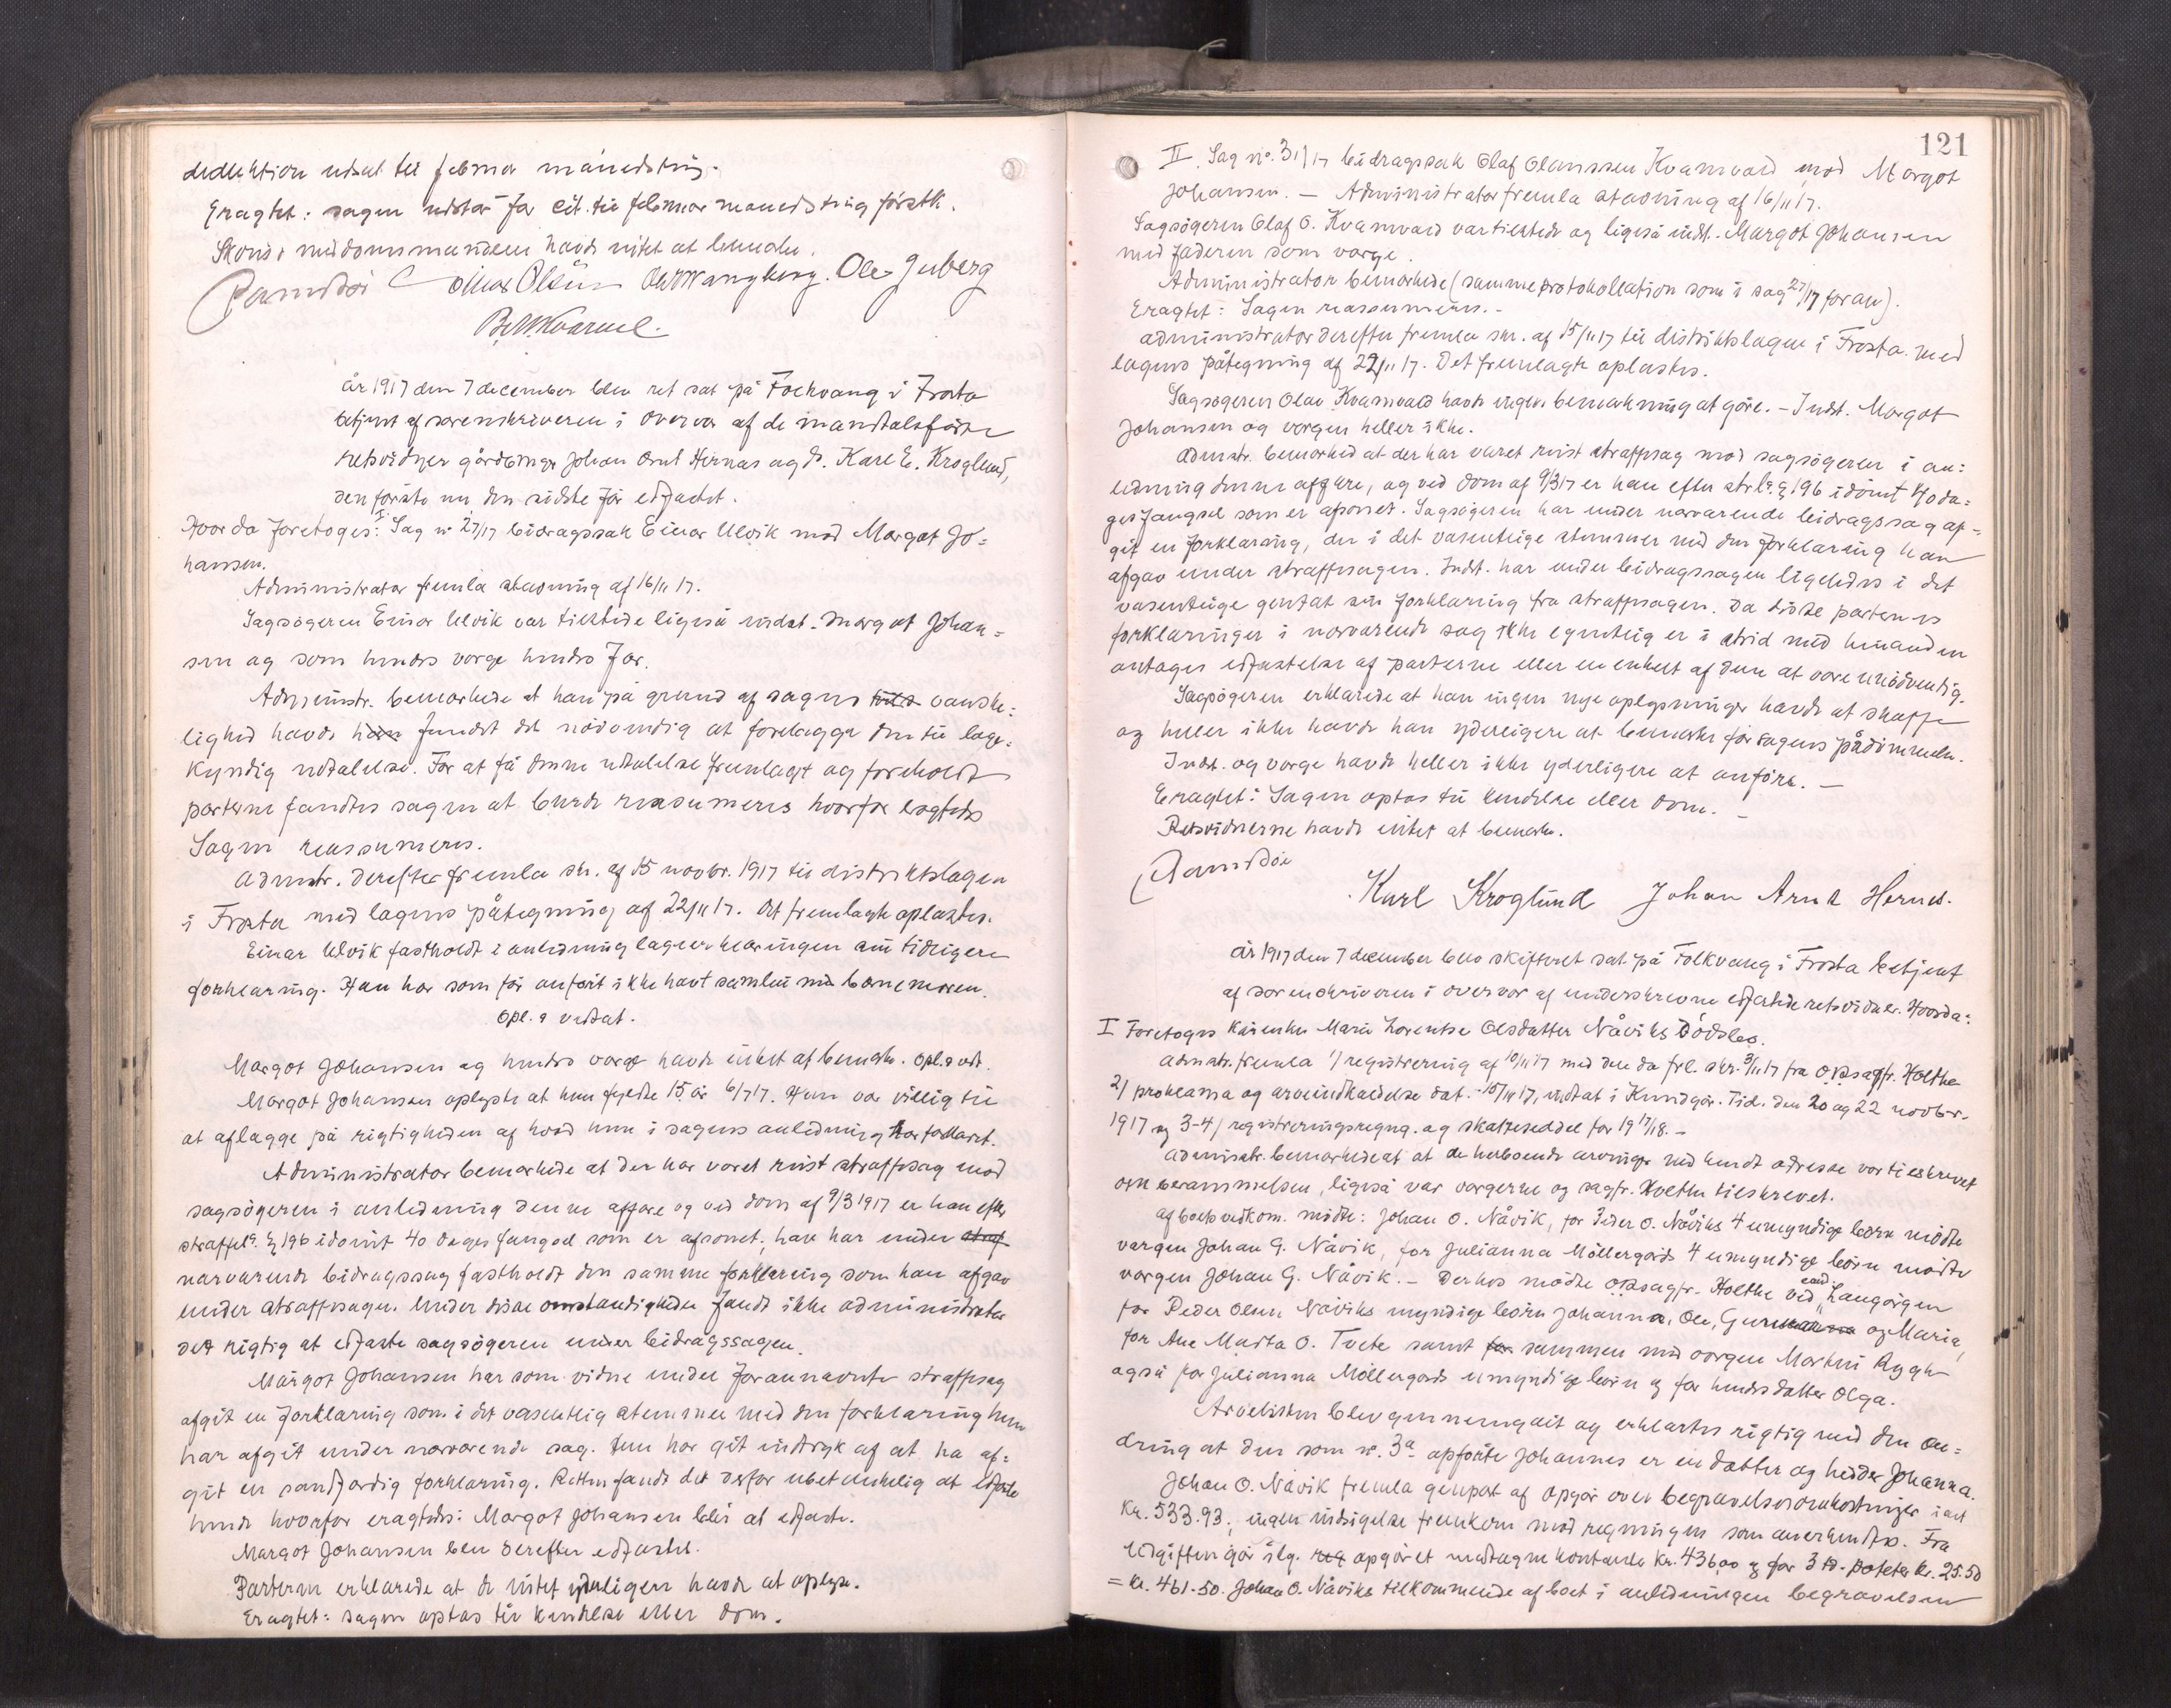 dedlektion udsat til februar månedsting.
Eragtet: sagen udstår for cit. til februar månedsting förstk.
Sköns & meddomsmændene havde intet at bemærke.
Ramsdöi Oskar Olsen Ole Juberg
år 1917 den 7 december blev ret sat på Folkvang i Frosta
betjent af sorenskriveren i overvær af de mandtalsförte
retsvidner gårdbruger Johan Arnt Hernæs og do. Karl E. Kroglund,
den förste nu, den sidste för edfæstet.
Hvorda foretoges: I Sag nr 27/17 bidragssak Einar Ulvik mod Margot Jo=
hansen.
Administrator fremla stævning af 16/11 17.
Sagsögeren Einar Ulvik var tilstede ligeså indst. Margot Johan=
sen og som hendes verge hendes far.
Administr. bemærkede at han på grund af sagens tvils vanske=
lighed havde han fundet det nödvendig at forelægge den til læge=
kyndig udtalelse. For at få denne udtalelse fremlagt og foreholdt
parterne fandtes sagen at burde reassumeres hvorfor eragtedes
Sagen reassumeres.
Admstr. derefter fremla skr. af 15 novbr. 1917 til distriktslægen
i Frosta med lægens påtegning af 22/11 17. Det fremlagte oplæstes.
Einar Ulvik fastholdt i anledning lægeerklæringen sin tidligere
forklaring. Han har som för anfört ikke havt samleie med barnemoren.
Opl. & vedtat.
Margot Johansen og hendes verge havde intet at bemærke. Opl. & vedt.
Margot Johansen oplyste at hun fyldte 15 år 6/7 17. Hun var villig til
at aflægge på rigtigheden af hvad hun i sagens anledning har forklaret.
Administrator bemærkede at der har været reist straffesag mod
sagsögeren i anledning denne affære og ved dom af 9/3 1917 er han efter
straffel. § 196 idömt 40 dages fængsel som er afsonet; han har under straf
nærværende bidragssag fastholdt den samme forklaring som han afgav
under straffesagen. Under disse omstændigheder fandt ikke administrator
det rigtig at edfæste sagsögeren under bidragssagen.
Margot Johansen har som vidne under forannævnte straffesag
afgit en forklaring som i det væsentlig stemmer med den forklaring hun
har afgit under nærværende sag. Hun har git indtryk af at ha af=
git en sandfærdig forklaring. Retten fandt det derfor ubetænkelig at edfæste
hende hvorfor eragtedes: Margot Johansen blir at edfæste.
Margot Johansen blev derefter edfæstet.
Parterne erklærede at de intet yderligere havde at oplyse.
Eragtet: sagen optas til kendelse eller dom.
121
II. Sag nr. 31/17 bidragssak Olaf Olaussen Kvamvold mod Margot
Johansen. — Administrator fremla stævning af 16/11 17.
Sagsögeren Olaf O. Kvamvold var tilstede og ligeså indst. Margot Johansen
med faderen som verge.
Administrator bemærkede (samme protokollation som i sag 27/17 foran).
Eragtet: Sagen reassumeres. –
Administrator derefter fremla skr. af 15/11 17 til distriktslægen i Frosta med
lægens påtegning af 22/11 17. Det fremlagte oplæstes.
Sagsögeren Olav Kvamvold havde ingen bemærkning at göre. – Indst. Margot
Johansen og vergen heller ikke.
Admstr. bemærked at der har været reist straffesag mod sagsögeren i an=
ledning denne affære, og ved dom af 9/3 17 er han efter strl. § 196 idömt 40 da=
ges fængsel som er afsonet. Sagsögeren har under nærværende bidragssag af=
git en forklaring, der i det væsentlige stemmer med den forklaring han
afgav under straffesagen. Indst. har under bidragssagen ligeledes i det
væsentlige gentat sin forklaring fra straffesagen. Da disse parternes
forklaringer i nærværende sag ikke egentlig er i strid med hinanden
antages edfæstelse af parterne eller en enkelt af dem at være unödvendig.
Sagsögeren erklærede at han ingen nye oplysninger havde at skaffe
og heller ikke havde han yderligere at bemærke för sagens pådömmelse.
Indst. og verge havde heller ikke yderligere at anföre. —
Eragtet: Sagen optas til kendelse eller dom. –
Retsvidnerne havde intet at bemærke.
Ramsdöi
Karl Kroglund Johan Arnt Hernes.
år 1917 den 7 december blev skifteret sat på Folkvang i Frosta betjent
af sorenskriveren i overvær af underskrevne edfæstede retsvidner. Hvorda:
I Foretoges Maria Lorentse Olsdatter Nåviks dödsbo.
Admstr. fremla 1/ registrering af 10/11 17 med den da frl. skr. 3/11 17 fra o.r.sagfr. Holthe
2/ proklama og arveindkaldelse dat. 15/11 17, indtat i Kundgör. Tid. den 20 og 22 novbr.
1917 og 3-4/ registreringsregng. og skatteseddel for 1917/18. –
Administr. bemærkede at at de herboende arvinger med kendt adresse var tilskrevet
om berammelsen, ligeså var vergerne og sagfr. Holthe tilskrevet.
Af boets vedkom. mödte: Johan O. Nåvik, for Peder O. Nåviks 4 umyndige börn mödte
vergen Johan G. Nåvik, for Julianna Möllergårds 4 umyndige börn mödte
vergen Johan G. Nåvik. – Derhos mödte o.r.sagfr. Holthe ved cand. Langörgen
for Peder Olsen Nåviks myndige börn Johanna, Ole, og Maria,
for Ane Marta O. Tvete samt for sammen med vergen Martin Rygh
også for Julianna Möllergårds umyndige börn og for hendes datter Olga.
Arvelisten blev gennemgåt og erklærtes rigtig med den æn=
dring at den som nr. 3a opförte Johannes er en datter og hedder Johanna.
Johan O. Nåvik fremla genpart af opgör over begravelsesomkostninger ialt
kr. 533.93; ingen indsigelse fremkom mod regningen som anerkendtes. Fra
Udgiften går ifg. reg opgöret modtagne kontanter kr. 43600 og for 3 td. poteter kr. 25.50
= kr. 461.50. Johan O. Nåviks tilkommende af boet i anledningen begravelsen